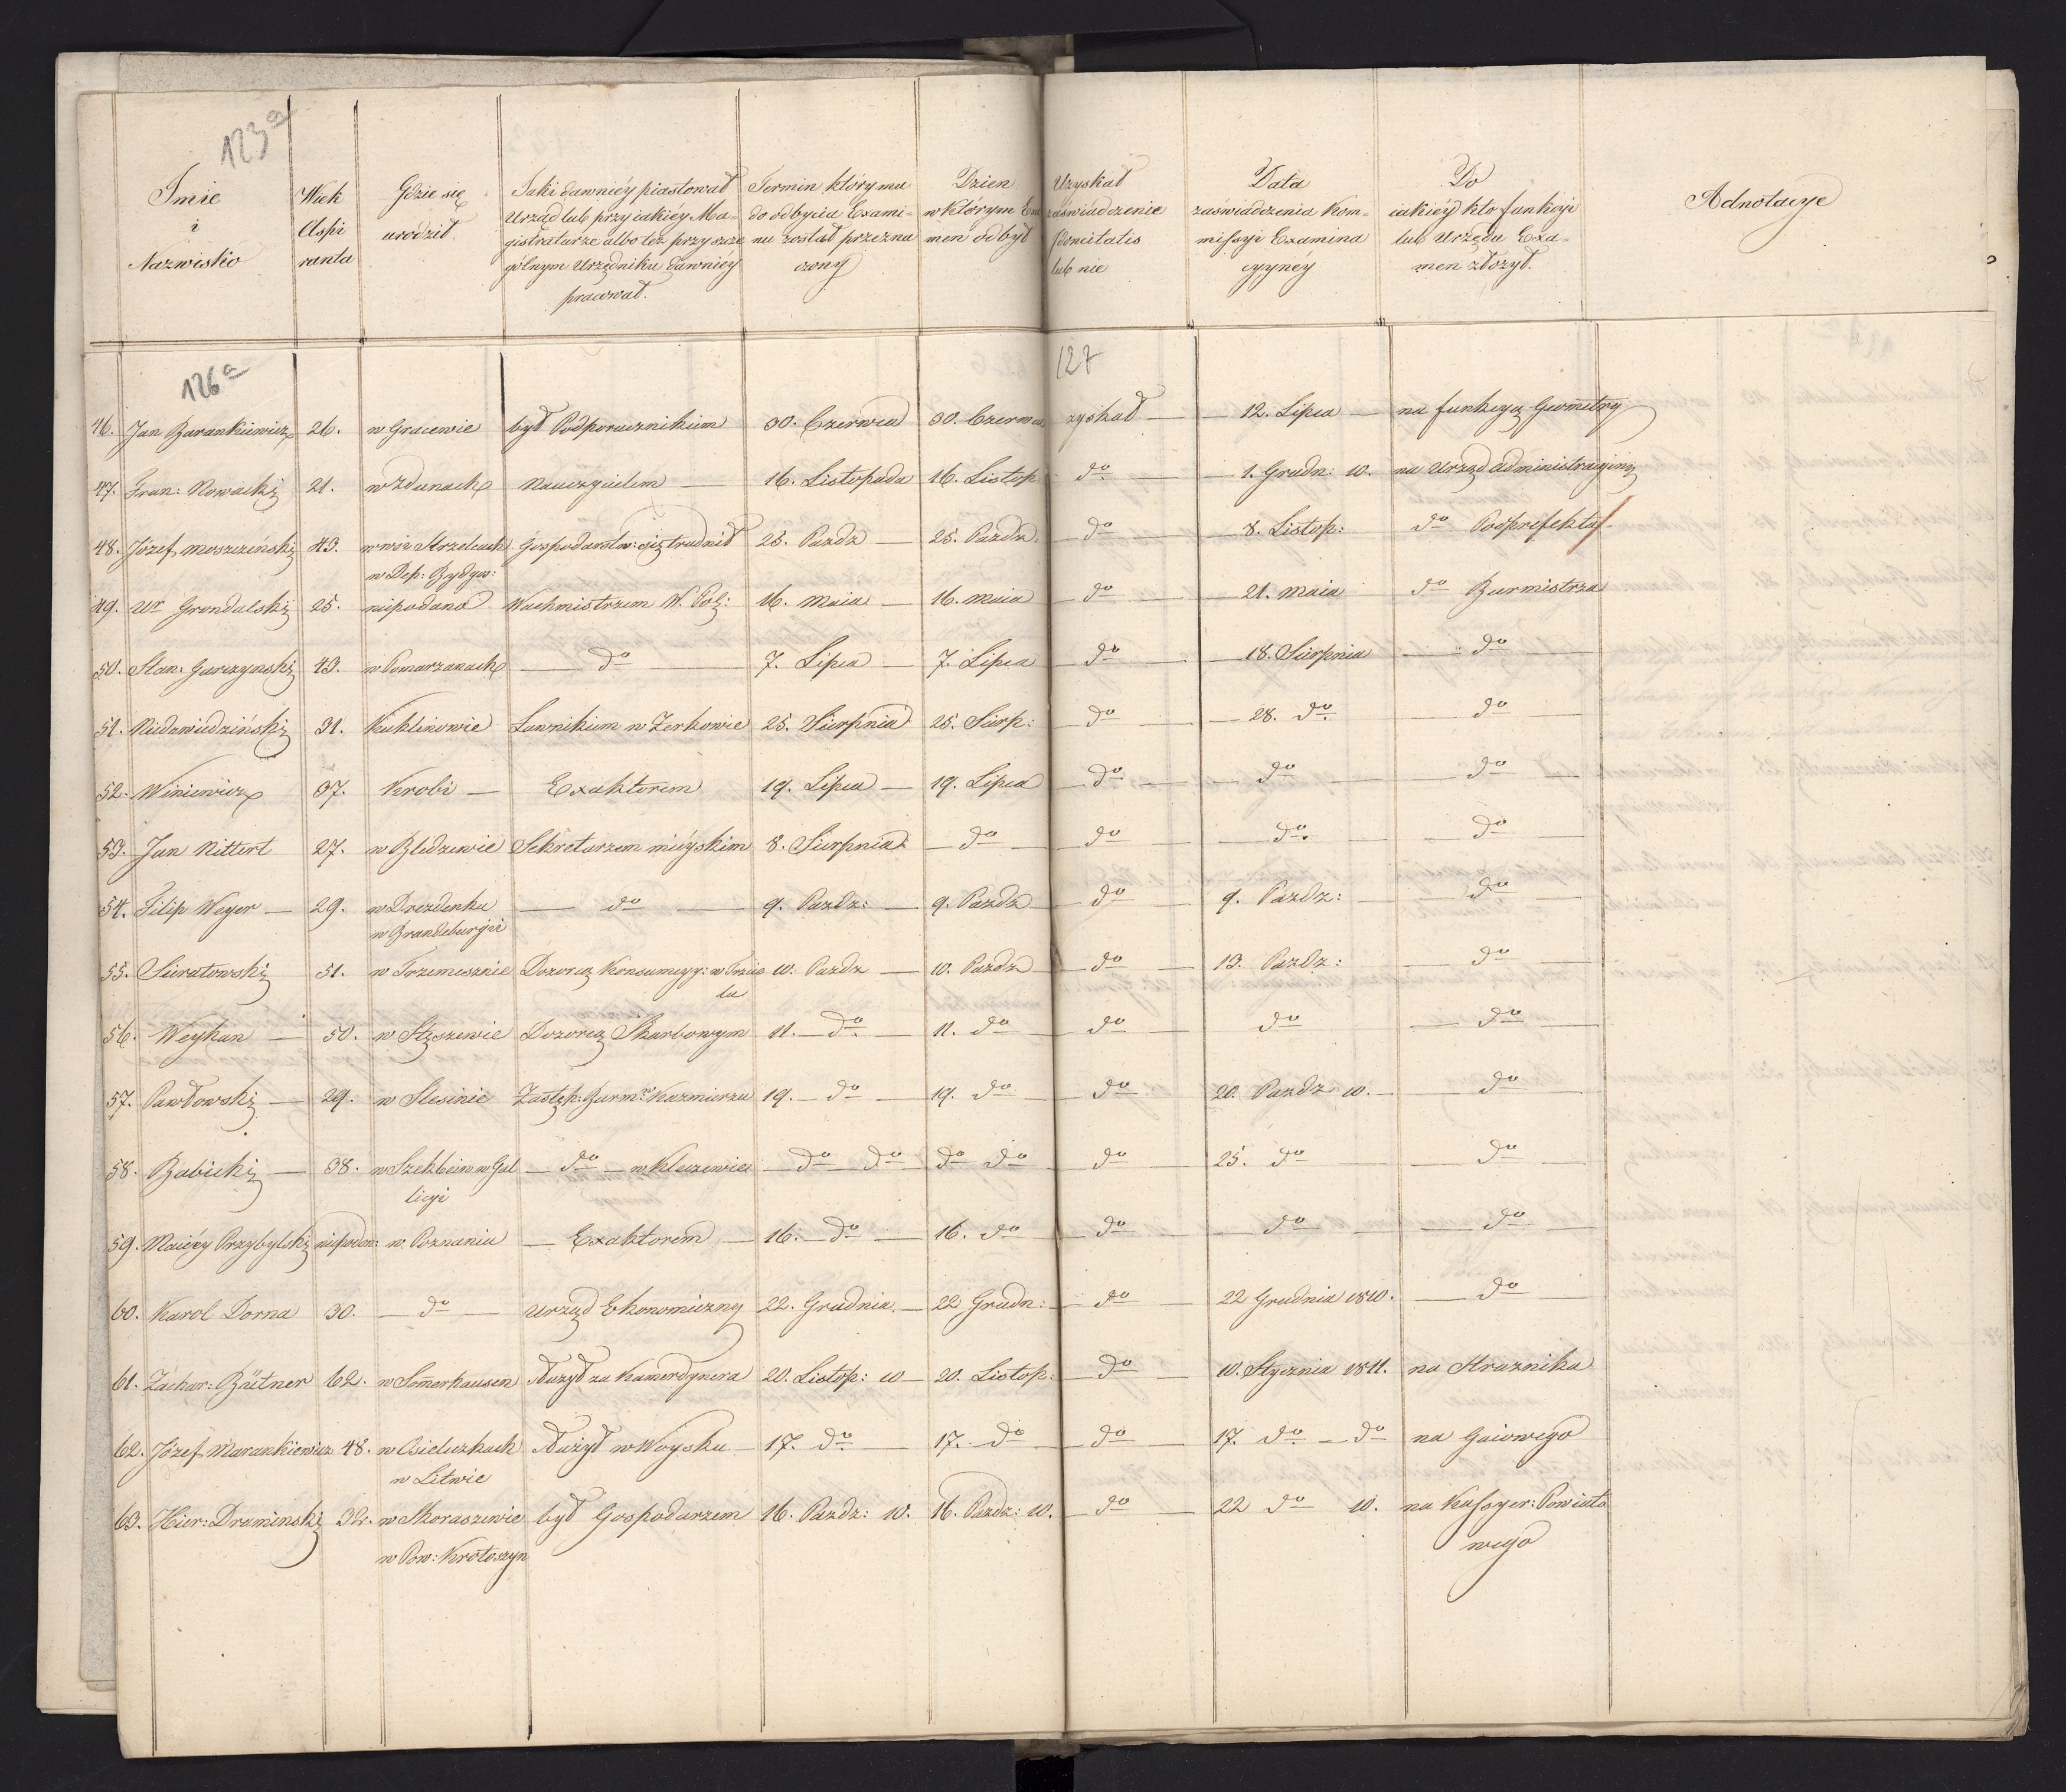 123a
Imie i Nazwisko | Wiek Aspiranta | Gdzie się urodził | Jaki dawniéy piastował Urząd lub przy iakiéy Magistraturze albo też przy szczególnym Urzędniku dawniéy pracował. | Termin który mu do odbycia Examinu został przeznaczony | Dzien w którym Examen odbył | Uzyskał zaświadczenie Idoneitatis lub nie | Data zaświadczenia Kommissyi Examinacyynéy | Do iakiéy kto funkcyi lub Urzędu Examen złożył. | Adnotacye
126a
127
46. Jan Barankiewicz | 26. | w Gracewie | był Podporucznikiem | 30. Czerwca | 30. Czerwca | zyskał | 12. Lipca | na funkcyą Geometry
47. Fran: Nowacki | 21. | w Zdunach | Nauczycielem | 16. Listopada | 16. Listop: | do | 1. Grudn: 10. | na Urząd administracyiny
48. Józef Moszczeński | 43. | w wsi Strzelcach | Gospodarstw: się trudnił | 25. Pazdz | 25. Pazdz | do | 8. Listop: | do Podprefekta
w Dep: Bydgos:
49. Ur Grondalski | 25. | niepodano | Wachmistrzem W. Pol: | 16. Maia | 16. Maia | do | 21. Maia | do Burmistrza
50. Stan: Gurczynski | 43. | w Pomarzanach | do | 7. Lipca | 7. Lipca | do | 18. Sierpnia | do
51. Niedzwiedziński | 31. | Kuklinowie | Ławnikiem w Zerkowie | 25. Sierpnia | 25. Sierp: | do | 28. do | do
52. Winiewicz | 37. | Krobi | Exaktorem | 19. Lipca | 19. Lipca | do | do | do
53. Jan Nittert | 27. | w Bledzewie | Sekretarzem mieyskim | 8. Sierpnia | do | do | do | do
54. Filip Weyer | 29. | w Drezdenku | do | 9. Pazdz: | 9. Pazdz | do | 9. Pazdz: | do
w Brandeburgii
55. Sieratowski | 51. | w Trzemesznie | Dozorcą Konsumcyy: w Trzcie | 10. Pazdz | 10. Pazdz | do | 13. Pazdz: | do
lu
56. Weykan | 50. | w Stęszewie | Dozorcą Skarbowym | 11. do | 11. do | do | do | do
57. Pawłowski | 29. | w Slesinie | Zastęp: Burm: w Kazmierzu | 19. do | 19. do | do | 20. Pazdz 10. | do
58. Babicki | 38. | w Szekbein w Gal | do w Kleczewie | do do | do do | do | 25. do | do
licyi
59. Maciey Przybylski | niepodan: | w Poznaniu | Exaktorem | 16. do | 16. do | do | do | do
60. Karol Dorna | 30. | do | Urząd Ekonomiczny | 22. Grudnia | 22 Grudn: | do | 22 Grudnia 1810. | do
61. Zachar: Büttner | 62. | w Somerhausen | Służył za Kamerdynera | 20. Listop: 10 | 20. Listop: | do | 10. Stycznia 1811. | na Straznika
62. Józef Marankiewicz | 48. | w Osieluzkach | Służył w Woysku | 17. do | 17. do | do | 17. do do | na Gaiowego
w Litwie
63. Hier: Draminski | 32. | w Skoraszewie | był Gospodarzem | 16. Pazdz: 10. | 16. Pazdz: 10. | do | 22 do 10. | na Kassyer: Powiato
w Pow: Krotoszyn | wego